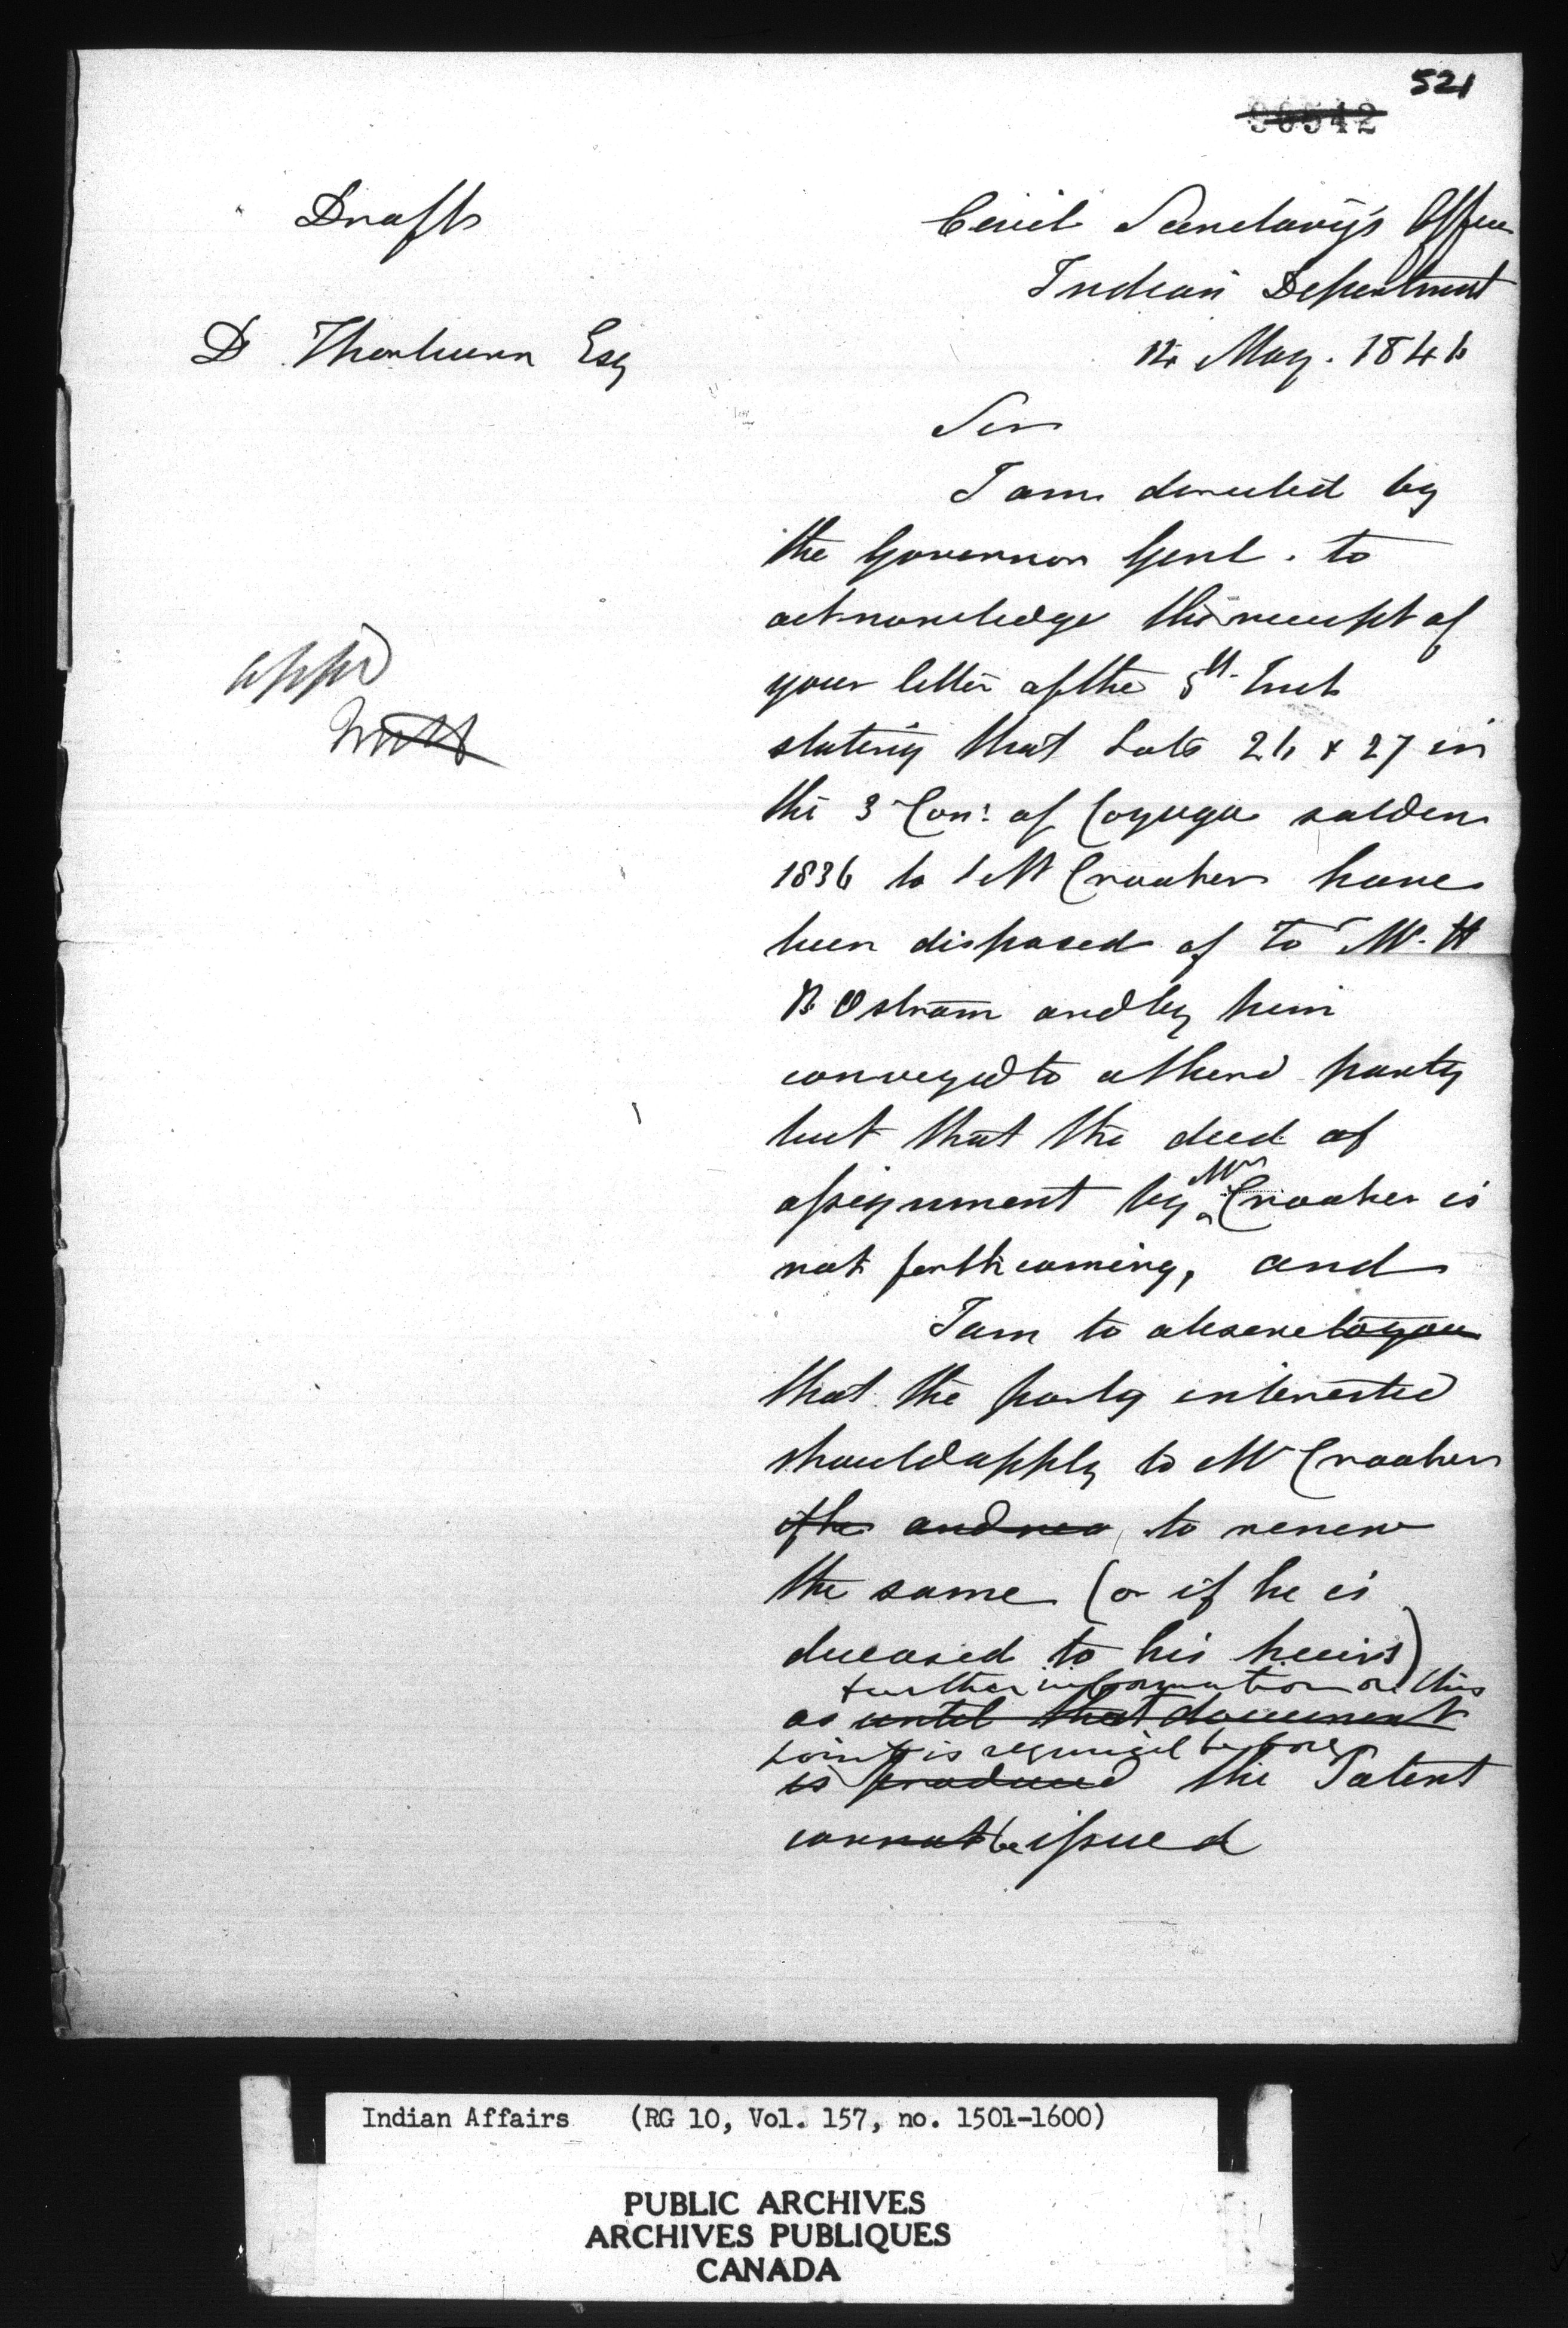 521
96542
Draft
Civil Secretary's Office
Indian Department
12 May. 1846
D Thorburn Esq
Sir
I am directed by
the Governor Genl. to
acknowledge the receipt of
your letter of the 5th Inst
appd
stating that Lots 26 & 27 in
the 3 Con: of Cayuga sold in
1836 to Mr Crooker have
been disposed of to Mr. H
B Ostrom and by him
conveyed to a third party
but that the deed of
assignment by Mr Crooker is
not forthcoming, and
I am to observe to you
that the party interested
should apply to Mr Crooker
if he and rea to renew
the same (or if he is
deceased to his heirs)
further information on this
as until that document
point is required before
is produced the Patent
cannot be issued
Indian Affairs (RG 10, Vol. 157, no. 1501-1600)
PUBLIC ARCHIVES
ARCHIVES PUBLIQUES
CANADA